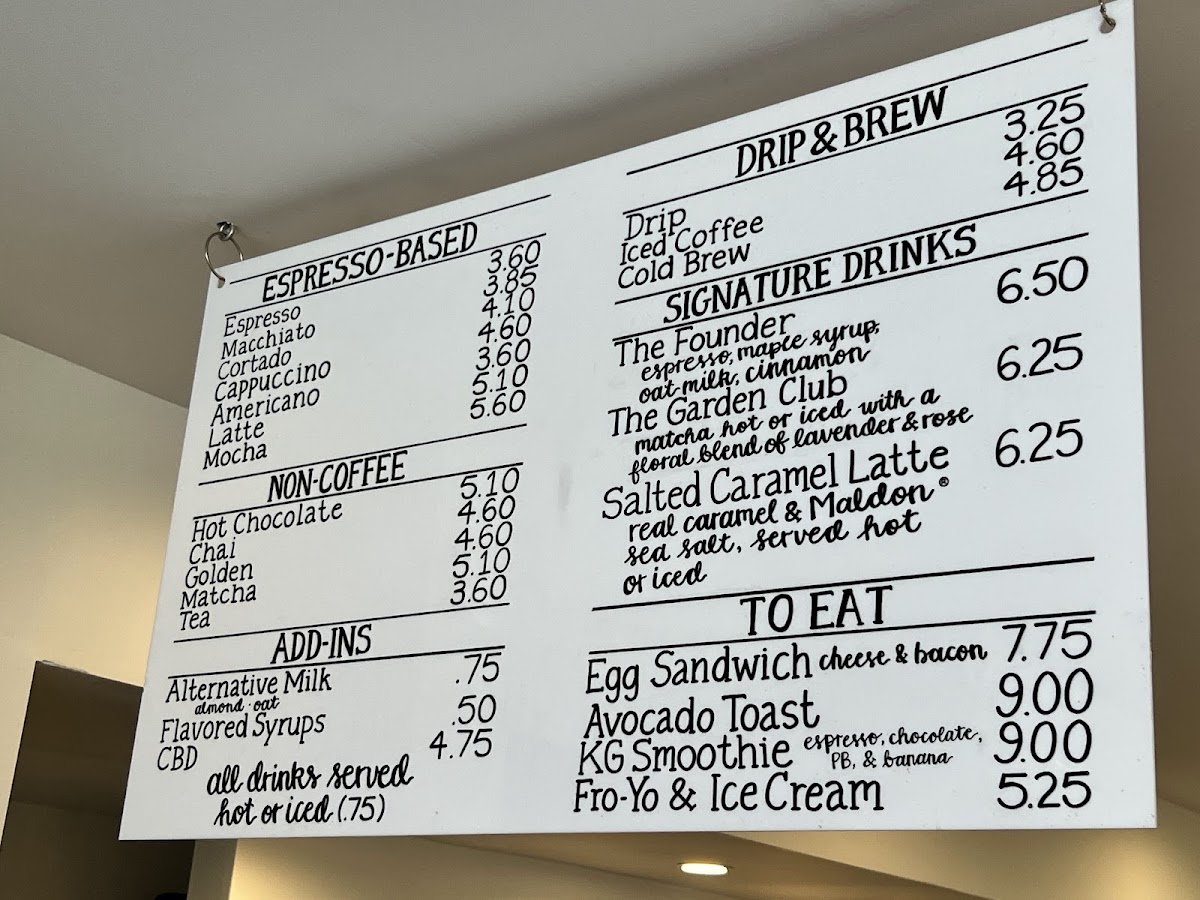 ESPRESSO-BASED
Espresso 3.60
Macchiato 3.85
Cortado 4.10
Cappuccino 4.60
Americano 3.60
Latte 5.10
Mocha 5.60
NON-COFFEE
Hot Chocolate 5.10
Chai 4.60
Golden 4.60
Matcha 5.10
Tea 3.60
ADD-INS
Alternative Milk .75
almond · oat
Flavored Syrups .50
CBD 4.75
all drinks served
hot or iced (.75)
DRIP & BREW
Drip 3.25
Iced Coffee 4.60
Cold Brew 4.85
SIGNATURE DRINKS
The Founder 6.50
espresso, maple syrup,
oat milk, cinnamon
The Garden Club 6.25
matcha hot or iced with a
floral blend of lavender & rose
Salted Caramel Latte 6.25
real caramel & Maldon®
sea salt, served hot
or iced
TO EAT
Egg Sandwich cheese & bacon 7.75
Avocado Toast 9.00
KG Smoothie espresso, chocolate, PB, & banana 9.00
Fro-Yo & Ice Cream 5.25